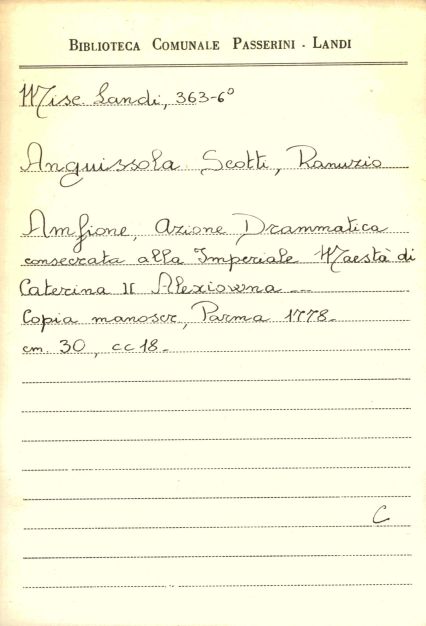 BIBLIOTECA COMUNALE PASSERINI - LANDI
Misc. Landi, 363-6°
Anguissola Scotti, Ranuzio
Amfione, Azione Drammatica
consecrata alla Imperiale Maestà di
Caterina II Alexiowna ---
Copia manoscr, Parma 1778-
cm. 30, cc 18-
C